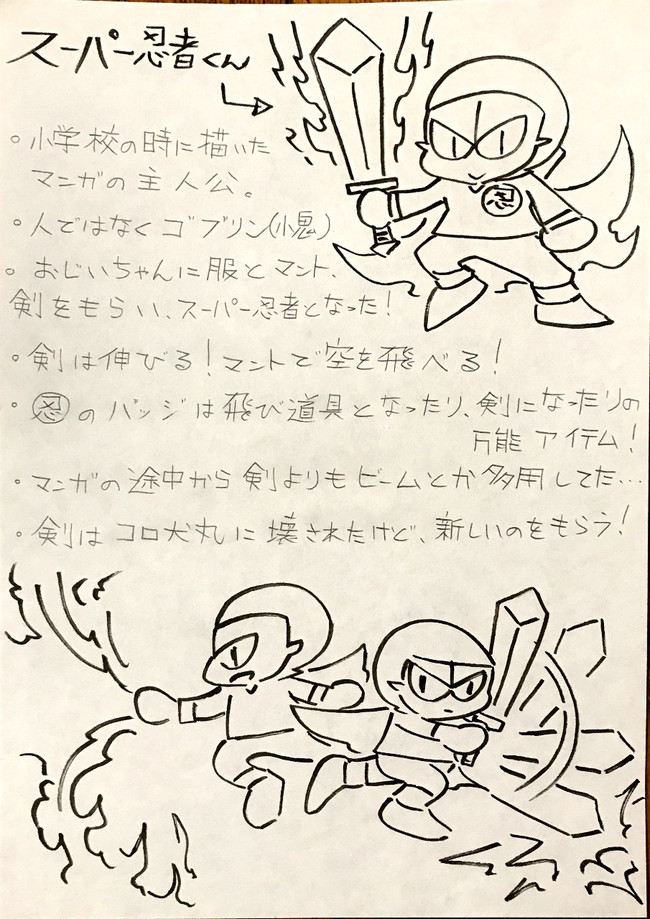 スーパー忍者くん
忍
・小学校の時に描いた
マンガの主人公。
・人ではなくゴブリン(小鬼)
・おじいちゃんに服とマント、
剣をもらい、スーパー忍者となった!
・剣は伸びる!マントで空を飛べる!
・忍のバッジは飛び道具となったり、剣になったりの
万能アイテム!
・マンガの途中から剣よりもビームとか多用してた…
・剣はコロ犬丸に壊されたけど、新しいのをもらう!